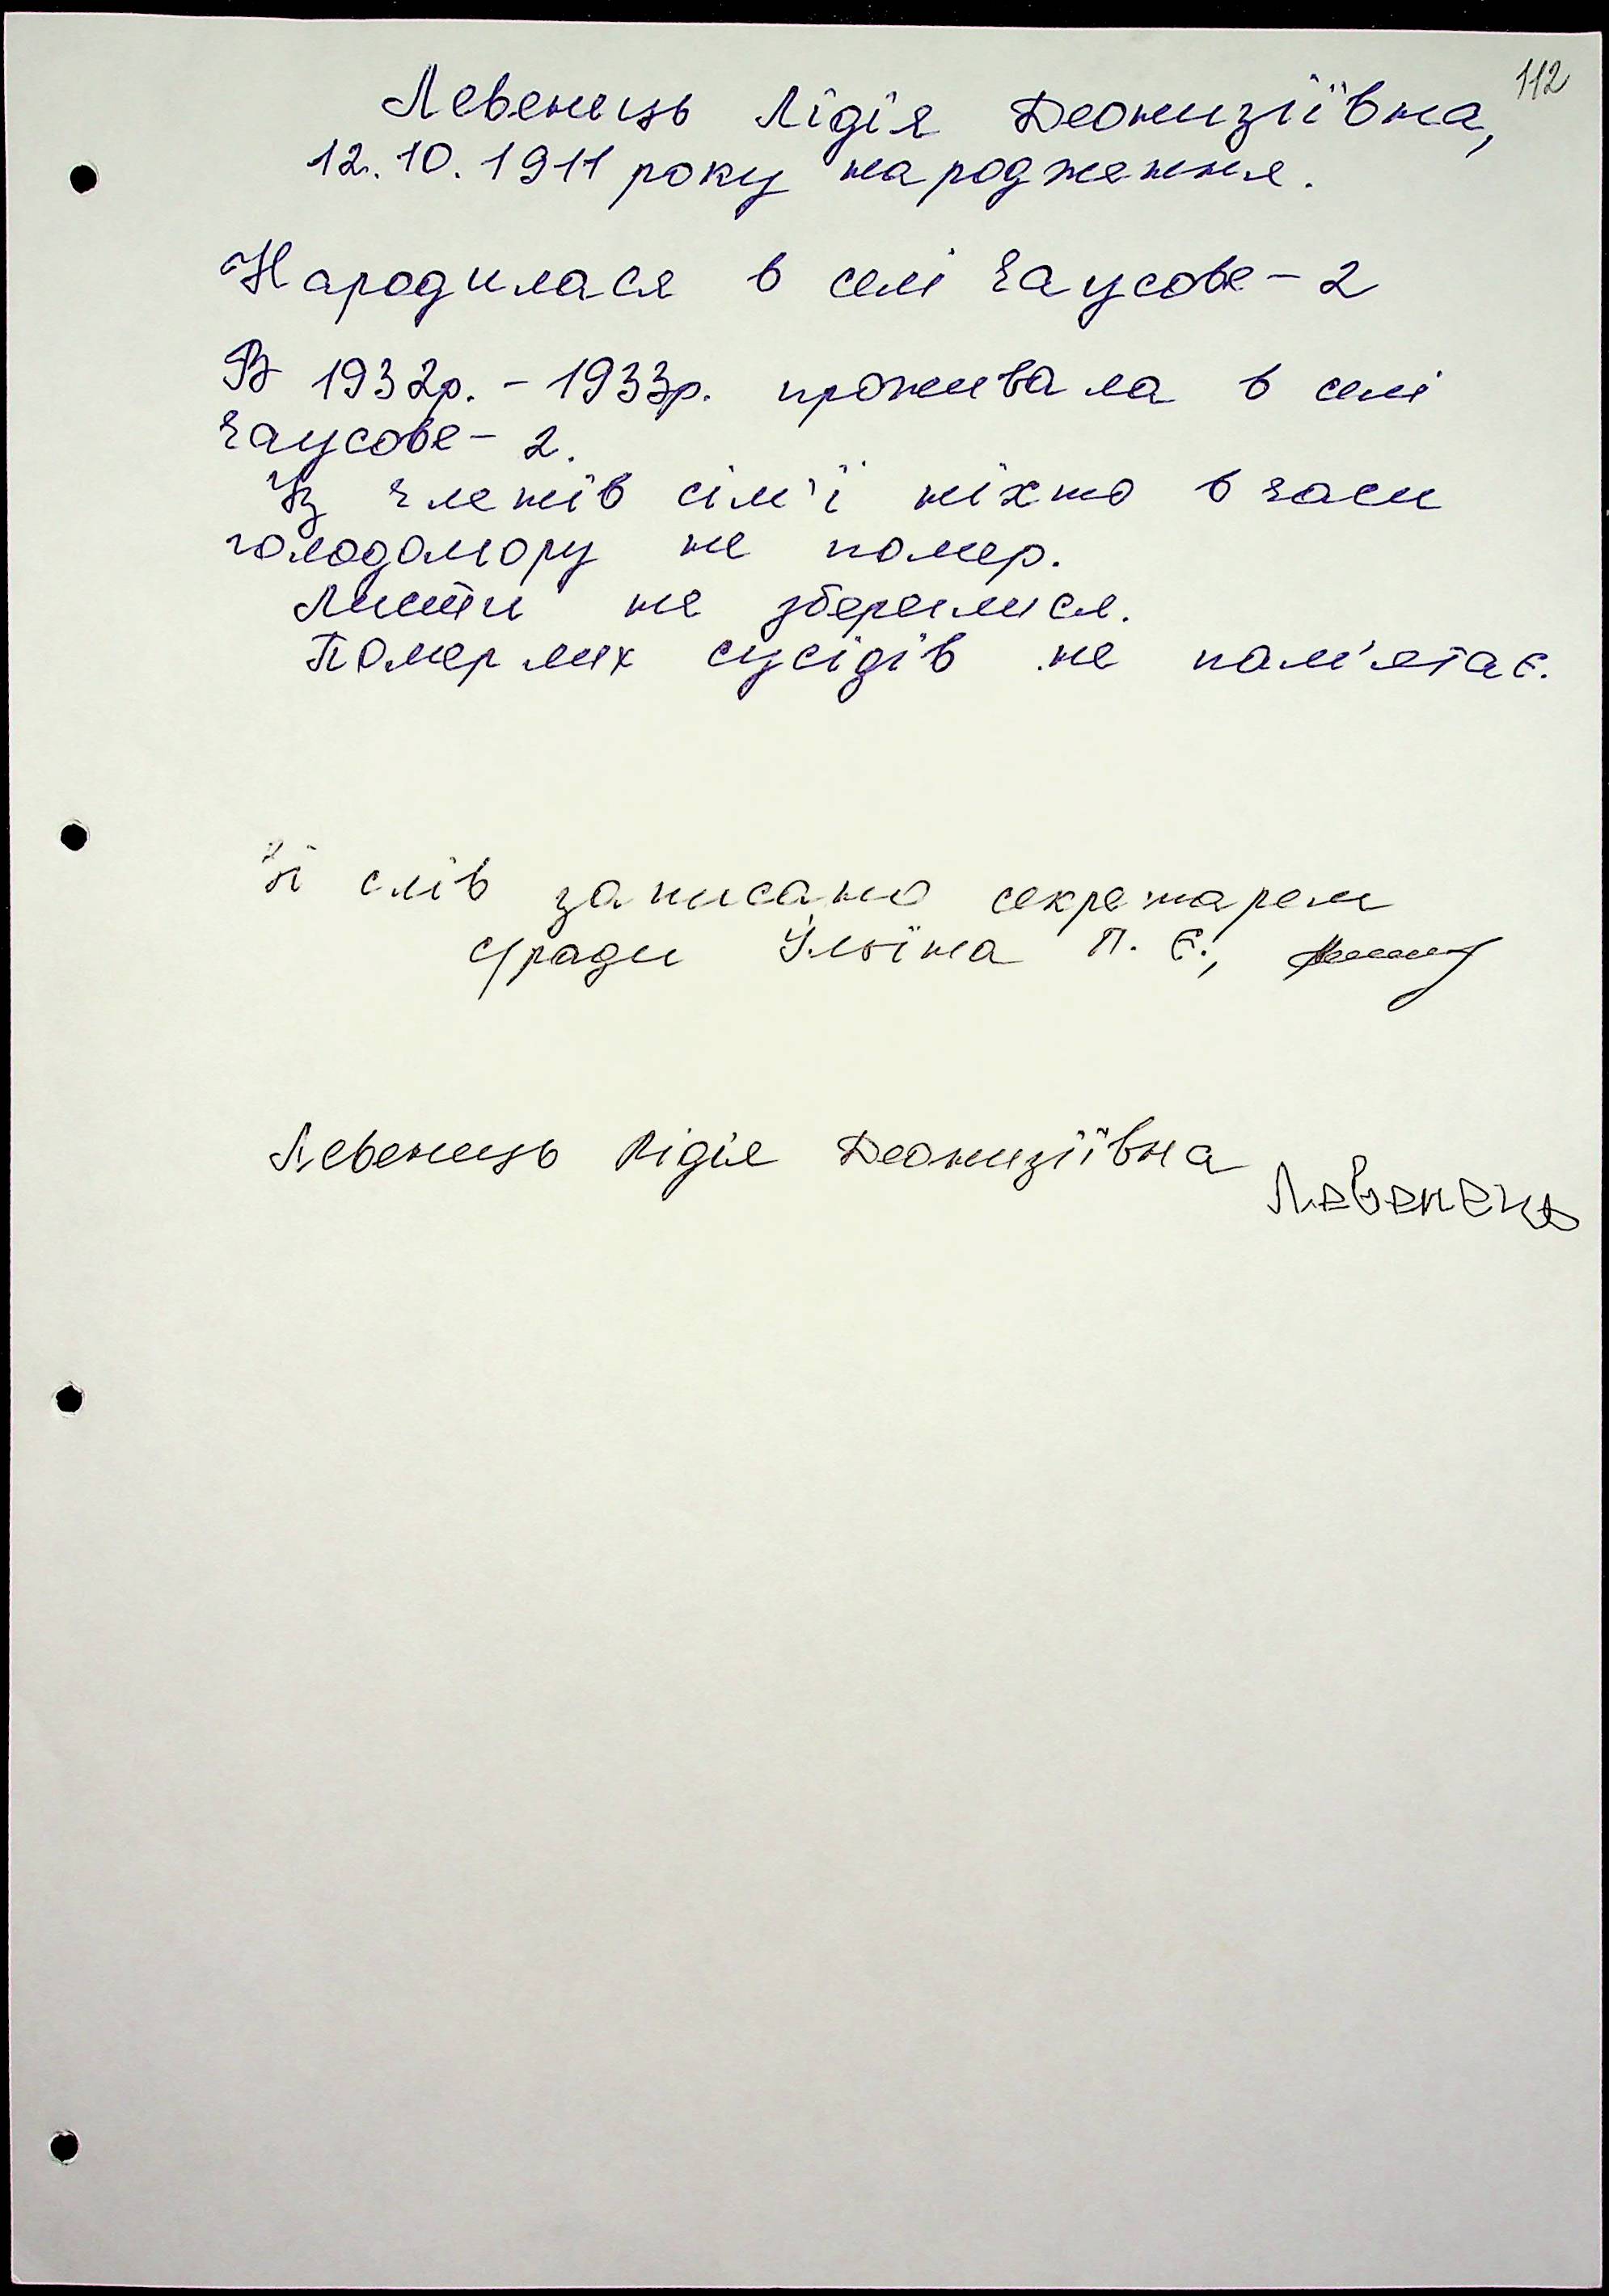 112
Левенець Лідія Деонизіївна,
12.10.1911 року народження.
Народилася в селі Чаусове-2
В 1932р. - 1933р. проживала в селі
Чаусове-2.
Із членів сім'ї ніхто в часи
голодомору не помер.
Листи не збереглися.
Померлих сусідів не пам'ятає.
Зі слів записано секретарем
с/ради Ільїна П. Є.,
Левенець Лідія Деонизіївна
Левенець